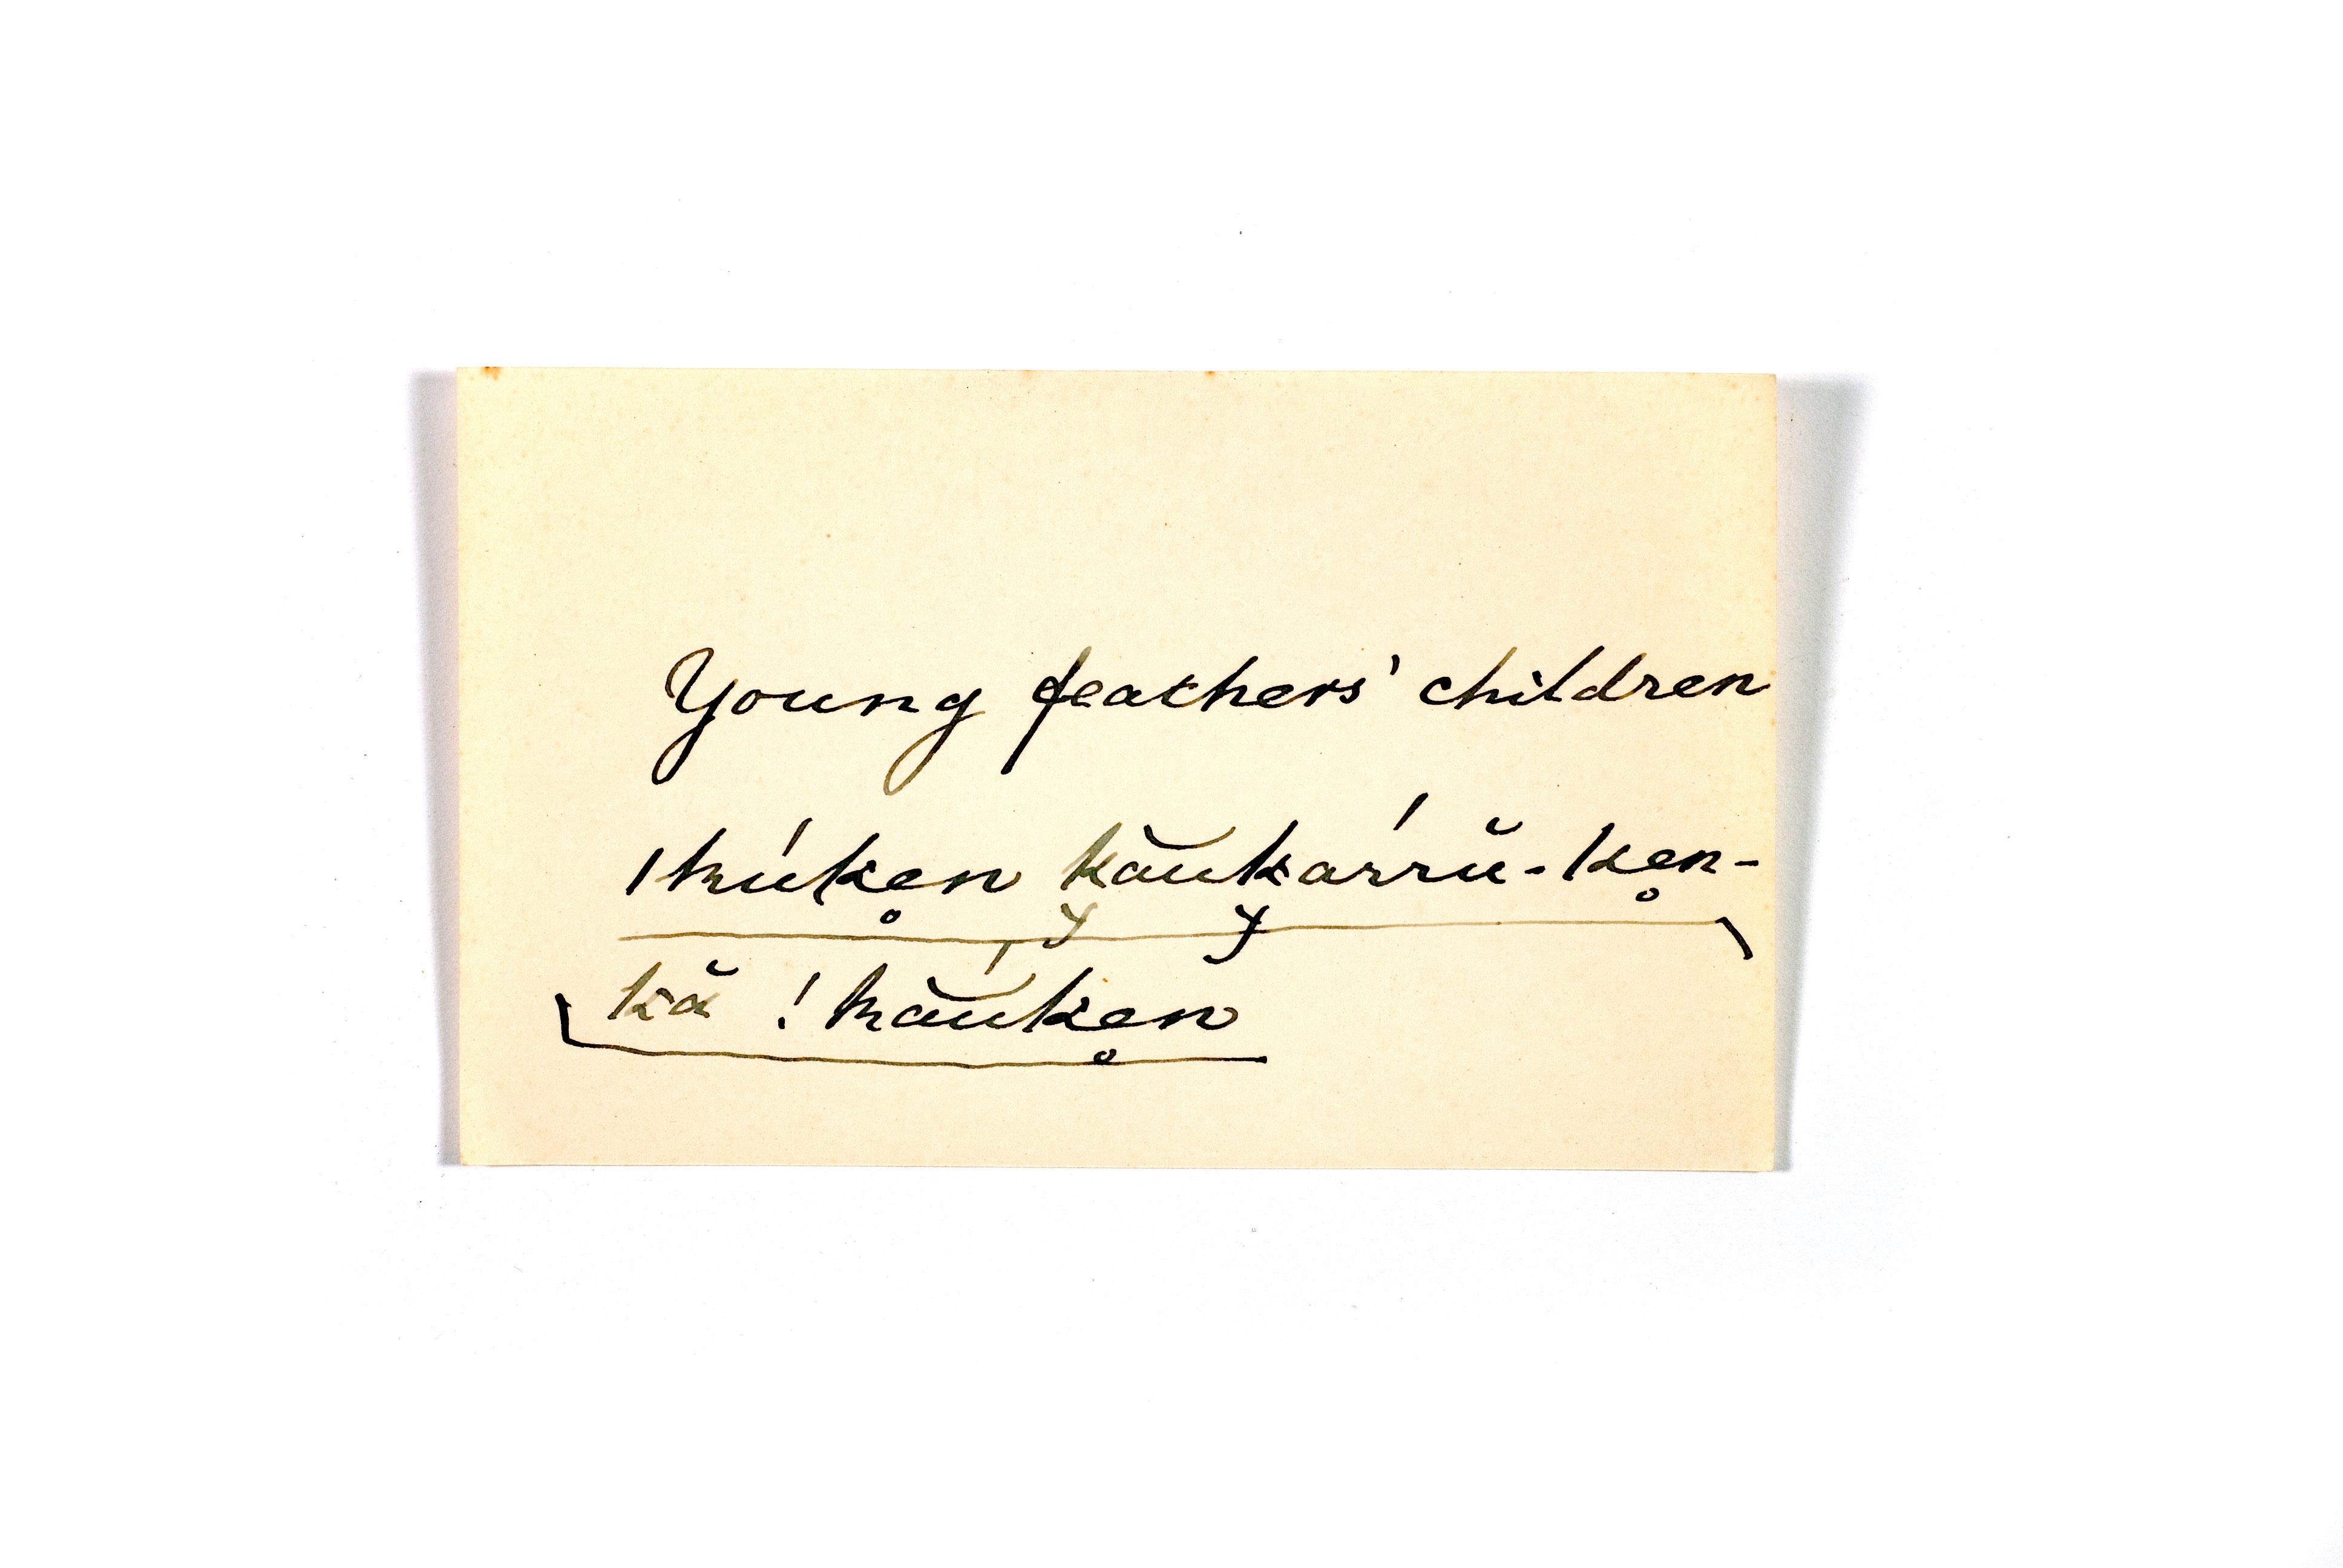 Young feathers' children
ǀhúk̥en k̆aŭkárrŭ-k̥en-
kă !háŭk̥en